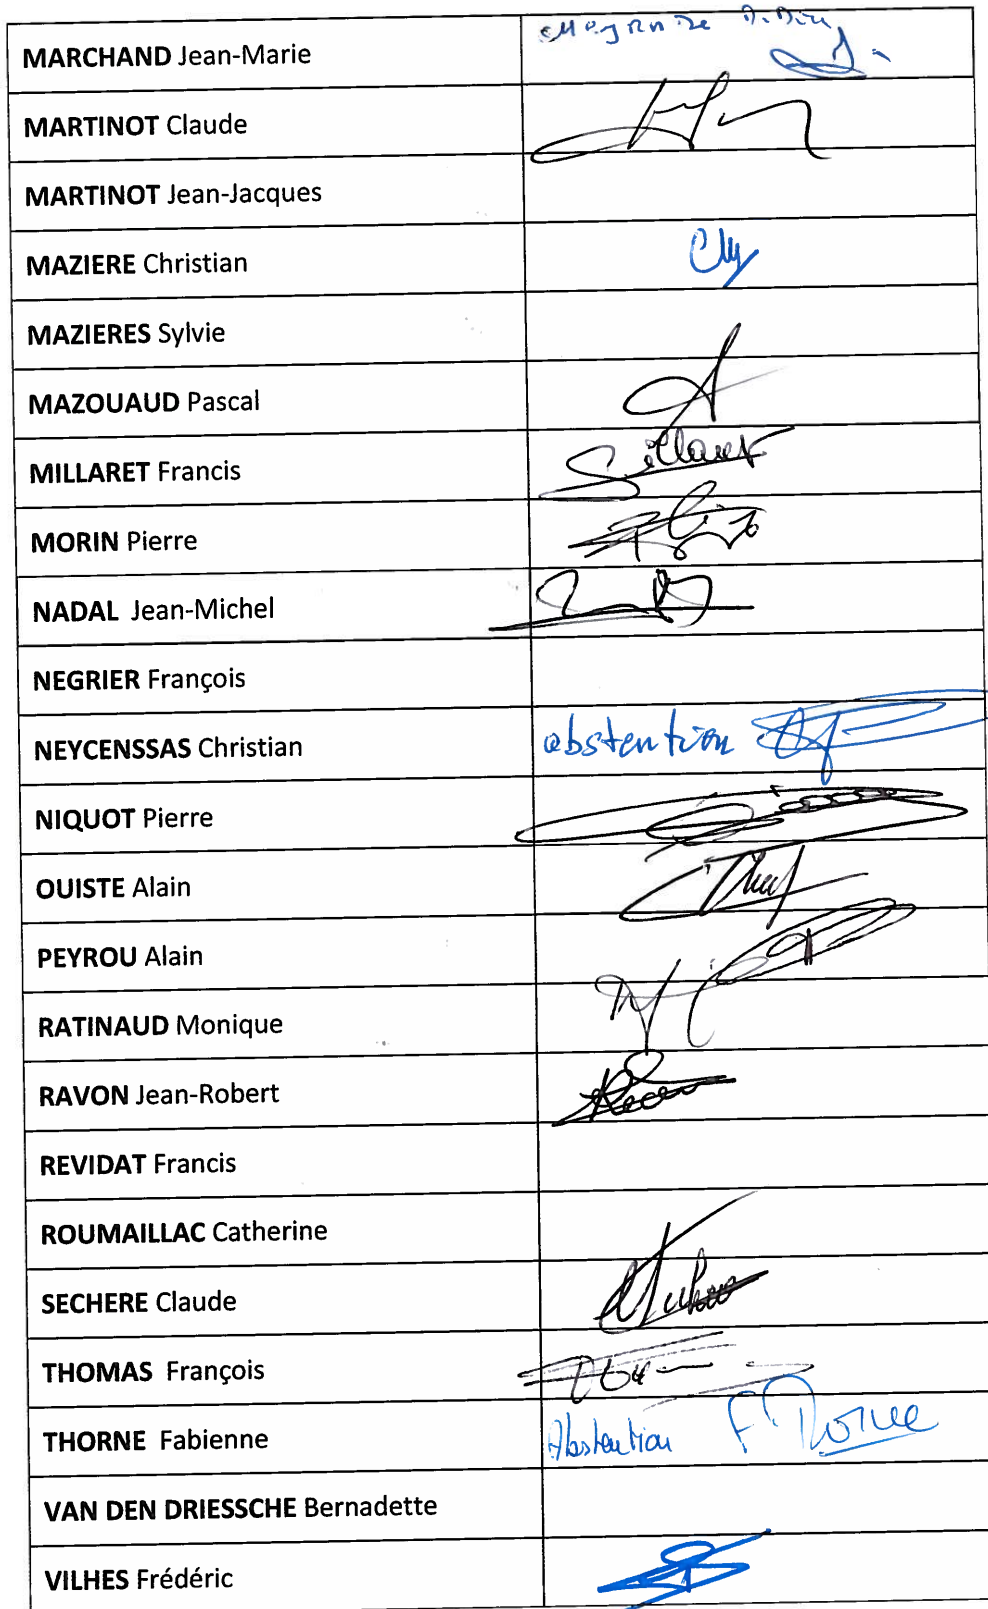 MARCHAND Jean-Marie
MARTINOT Claude
MARTINOT Jean-Jacques
MAZIERE Christian
MAZIERES Sylvie
MAZOUAUD Pascal
MILLARET Francis
MORIN Pierre
NADAL Jean-Michel
NEGRIER François
NEYCENSSAS Christian abstention
NIQUOT Pierre
OUISTE Alain
PEYROU Alain
RATINAUD Monique
RAVON Jean-Robert
REVIDAT Francis
ROUMAILLAC Catherine
SECHERE Claude
THOMAS François
THORNE Fabienne Abstention F Thorne
VAN DEN DRIESSCHE Bernadette
VILHES Frédéric